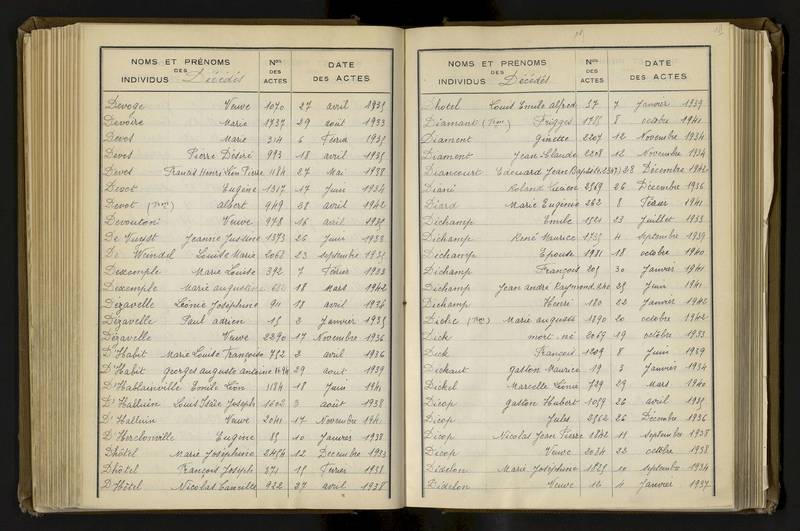 NOMS ET PRÉNOMS DES INDIVIDUS Décédés | Nos DES ACTES | DATE DES ACTES
Devoge Veuve 1070 27 avril 1935
Devoire Marie 1737 29 août 1933
Devos Marie 314 6 Février 1935
Devos Pierre Désiré 993 18 avril 1935
Devos Francis Henri Léon Pierre 1184 27 Mai 1938
Devot Eugène 1317 17 Juin 1934
Devot albert 949 28 avril 1942
Devouton Veuve 978 16 avril 1935
De Vuyst Jeanne Justine 1373 26 Juin 1933
De Wendel Louise Marie 2062 23 septembre 1935
Dexemple Marie Louise 392 7 Février 1933
Dexemple Marie augustine 682 18 Mars 1942
Dézavelle Léonie Joséphine 911 18 avril 1936
Dézavelle Paul adrien 15 3 Janvier 1935
Dézavelle Veuve 2290 17 Novembre 1936
D'Habit Marie Louise Françoise 752 3 avril 1936
D'Habit georges auguste antoine 1494 29 août 1939
D'Hablainville Emile Léon 1184 18 Juin 1941
D'Halluin Louis Isaïe Joseph 1602 3 août 1938
D'Halluin Veuve 2041 17 Novembre 1941
D'Herclonville Eugène 85 10 Janvier 1938
Dhôtel Marie Joséphine 2454 12 Décembre 1933
Dhôtel François Joseph 371 15 Février 1938
D'Hôtel Nicolas Camille 922 27 avril 1938
NOMS ET PRÉNOMS DES INDIVIDUS Décédés | Nos DES ACTES | DATE DES ACTES
Dhotel Louis Emile alfred 57 7 Janvier 1939
Diamant Frigges 1755 8 octobre 1941
Diament Ginette 2207 12 Novembre 1934
Diament Jean Claude 2208 12 Novembre 1934
Diancourt Edouard Jean Baptiste 2347 28 Décembre 1942
Diané Roland Lucien 2569 26 Décembre 1936
Diard Marie Eugénie 262 8 Février 1941
Dichamp Emile 1521 23 Juillet 1933
Dichamp René Maurice 1735 4 septembre 1939
Dichamp Epouse 1981 18 octobre 1940
Dichamp François 205 30 Janvier 1941
Dichamp Jean andre Raymond 1240 25 Juin 1941
Dichamp Henri 180 22 Janvier 1942
Diche Marie auguste 1890 20 octobre 1942
Dick mort né 2069 19 octobre 1933
Dick François 1209 8 Juin 1939
Dickaut gaston Maurice 19 3 Janvier 1934
Dickel Marcelle Léonie 729 29 Mars 1940
Dicop gaston Hubert 1059 26 avril 1935
Dicop Jules 2562 26 Décembre 1936
Dicop Nicolas Jean Pierre 1842 11 septembre 1938
Dicop Veuve 2034 22 octobre 1938
Didelon Marie Joséphine 1835 10 septembre 1934
Didelon Veuve 12 4 Janvier 1937